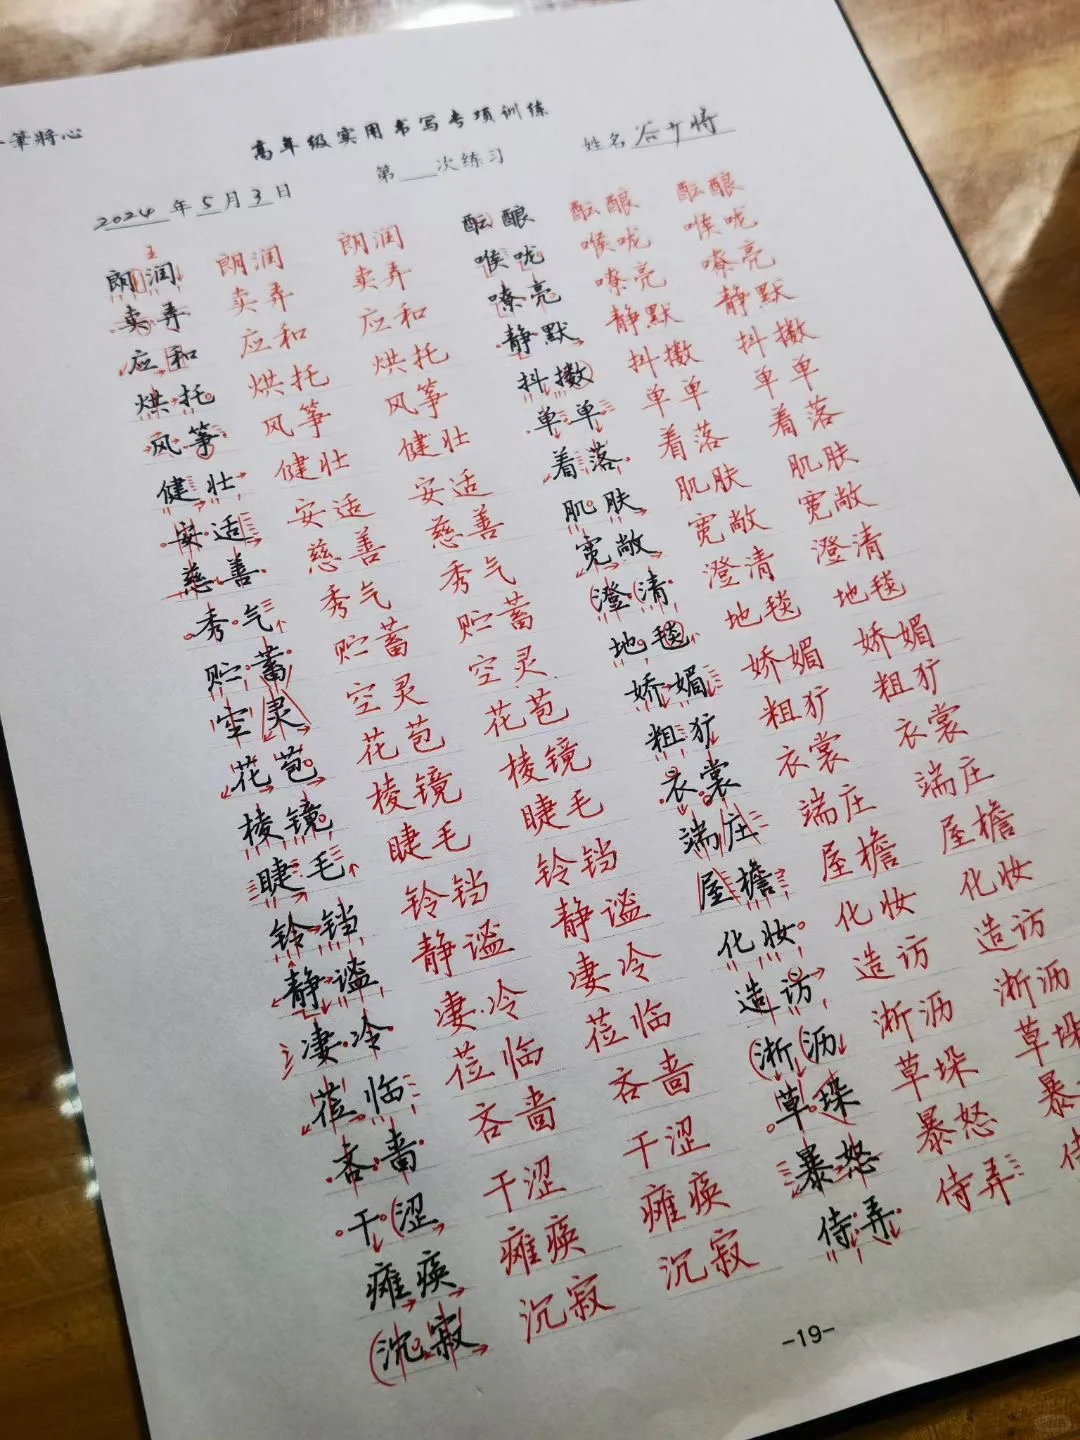 筆將心
高年级实用书写专项训练
2024年5月3日 第 次练习 姓名
朗润 朗润 朗润 酝酿 酝酿 酝酿
卖弄 卖弄 卖弄 喉咙 喉咙 喉咙
应和 应和 应和 嘹亮 嘹亮 嘹亮
烘托 烘托 烘托 静默 静默 静默
风筝 风筝 风筝 抖擞 抖擞 抖擞
健壮 健壮 健壮 单单 单单 单单
安适 安适 安适 着落 着落 着落
慈善 慈善 慈善 肌肤 肌肤 肌肤
秀气 秀气 秀气 宽敞 宽敞 宽敞
贮蓄 贮蓄 贮蓄 澄清 澄清 澄清
空灵 空灵 空灵 地毯 地毯 地毯
花苞 花苞 花苞 娇媚 娇媚 娇媚
棱镜 棱镜 棱镜 粗犷 粗犷 粗犷
睫毛 睫毛 睫毛 衣裳 衣裳 衣裳
铃铛 铃铛 铃铛 端庄 端庄 端庄
静谧 静谧 静谧 屋檐 屋檐 屋檐
凄冷 凄冷 凄冷 化妆 化妆 化妆
莅临 莅临 莅临 造访 造访 造访
吝啬 吝啬 吝啬 淅沥 淅沥 淅沥
干涩 干涩 干涩 草垛 草垛 草垛
瘫痪 瘫痪 瘫痪 暴怒 暴怒 暴
沉寂 沉寂 沉寂 侍弄 侍弄
-19-